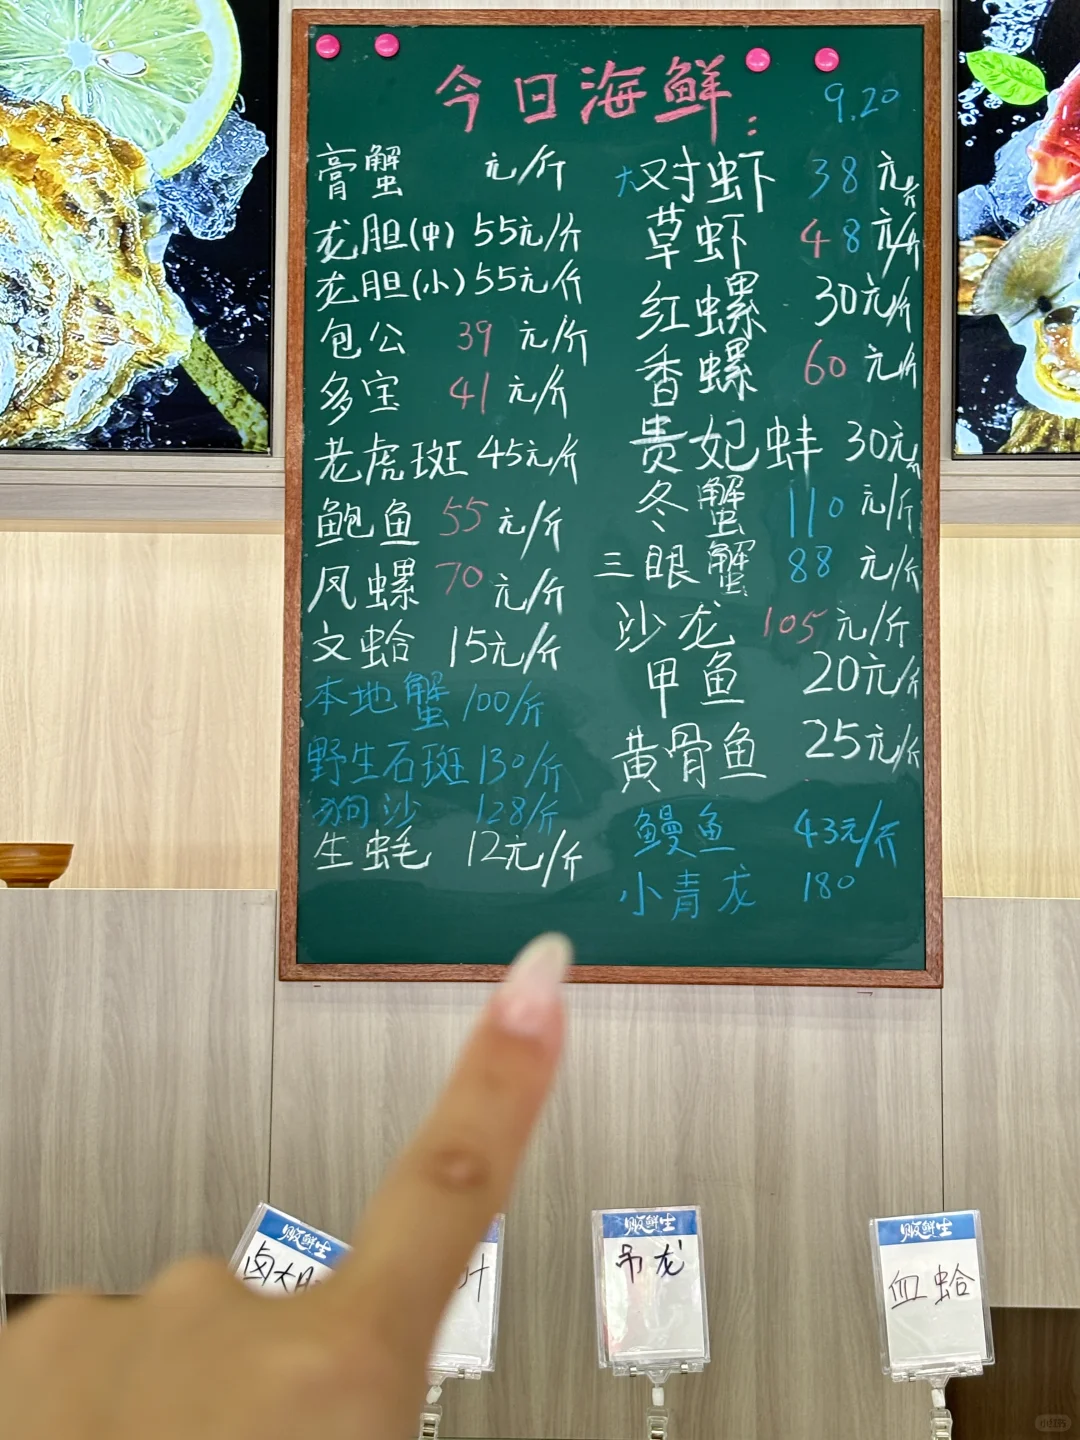 今日海鲜:
9.20
膏蟹 元/斤
龙胆(中) 55元/斤
龙胆(小) 55元/斤
包公 39 元/斤
多宝 41 元/斤
老虎斑 45元/斤
鲍鱼 55 元/斤
凤螺 70 元/斤
文蛤 15元/斤
本地蟹 100/斤
野生石斑 130/斤
狗沙 128/斤
生蚝 12元/斤
大对虾 38 元/斤
草虾 48 元/斤
红螺 30元/斤
香螺 60 元/斤
贵妃蚌 30元/斤
冬蟹 110 元/斤
三眼蟹 88 元/斤
沙龙 105 元/斤
甲鱼 20元/斤
黄骨鱼 25元/斤
鳗鱼 43元/斤
小青龙 180
贩鲜生
卤大
贩鲜生
吊龙
贩鲜生
血蛤